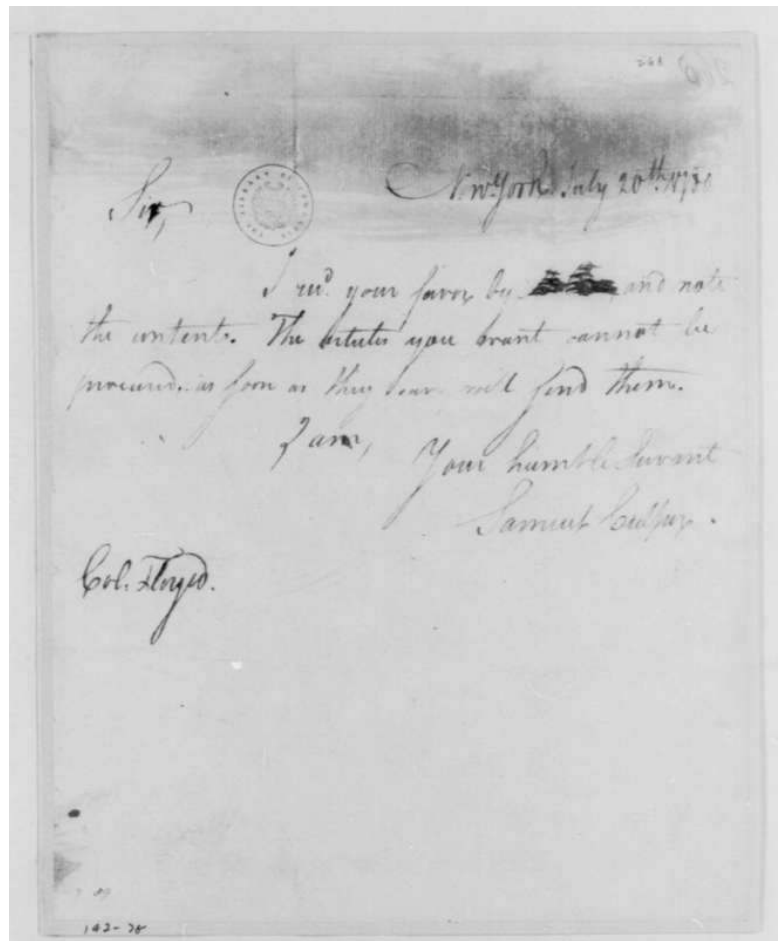 268
New York July 20th. 1780
Sir,
I recd. your favor by and note
the contents. The articles you want cannot be
procured. as soon as they can will send them.
I am,
Your humble Servant
Samuel Culper.
Col. Floyd.
142-78